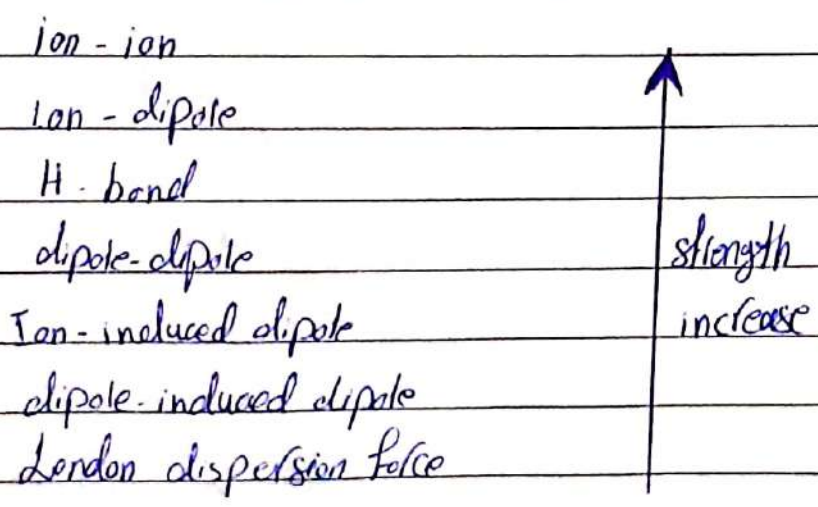 ion - ion
Ion - dipole
H - bond
dipole-dipole
Ion - induced dipole
dipole-induced dipole
London dispersion force
strength
increase